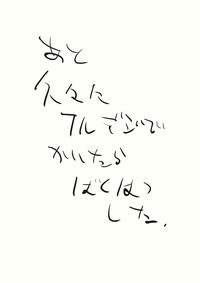 あと
久々に
フルで
かいたら
ばくはつ
した.